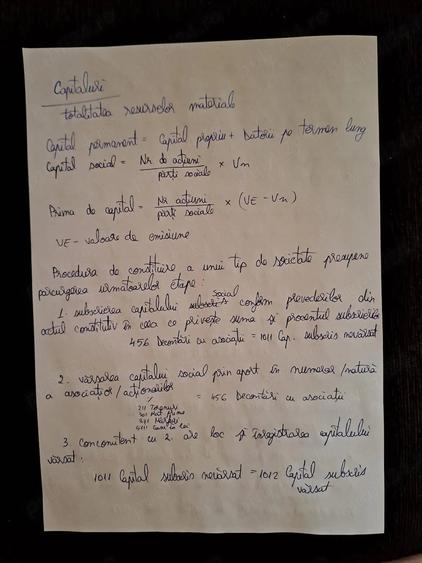 Capitaluri
totalitatea resurselor materiale
Capital permanent = Capital propriu + Datorii pe termen lung
Capital social = Nr de acțiuni / părți sociale × Vn
Prima de capital = Nr acțiuni / părți sociale × (VE - Vn)
VE - valoare de emisiune
Procedura de constituire a unui tip de societate presupune
parcurgerea următoarelor etape:
1. subscrierea capitalului subscris social conform prevederilor din
actul constitutiv în ceea ce privește suma și procentul subscrierilor
456 Decontări cu asociații = 1011 Cap. subscris nevărsat
2. vărsarea capitalului social prin aport în numerar/natură
a asociaților/acționarilor
% = 456 Decontări cu asociații
211 Terenuri
301 Mat. prime
371 Mărfuri
5311 Casa în lei
3. Concomitent cu 2. are loc și înregistrarea capitalului
vărsat:
1011 Capital subscris nevărsat = 1012 Capital subscris
vărsat